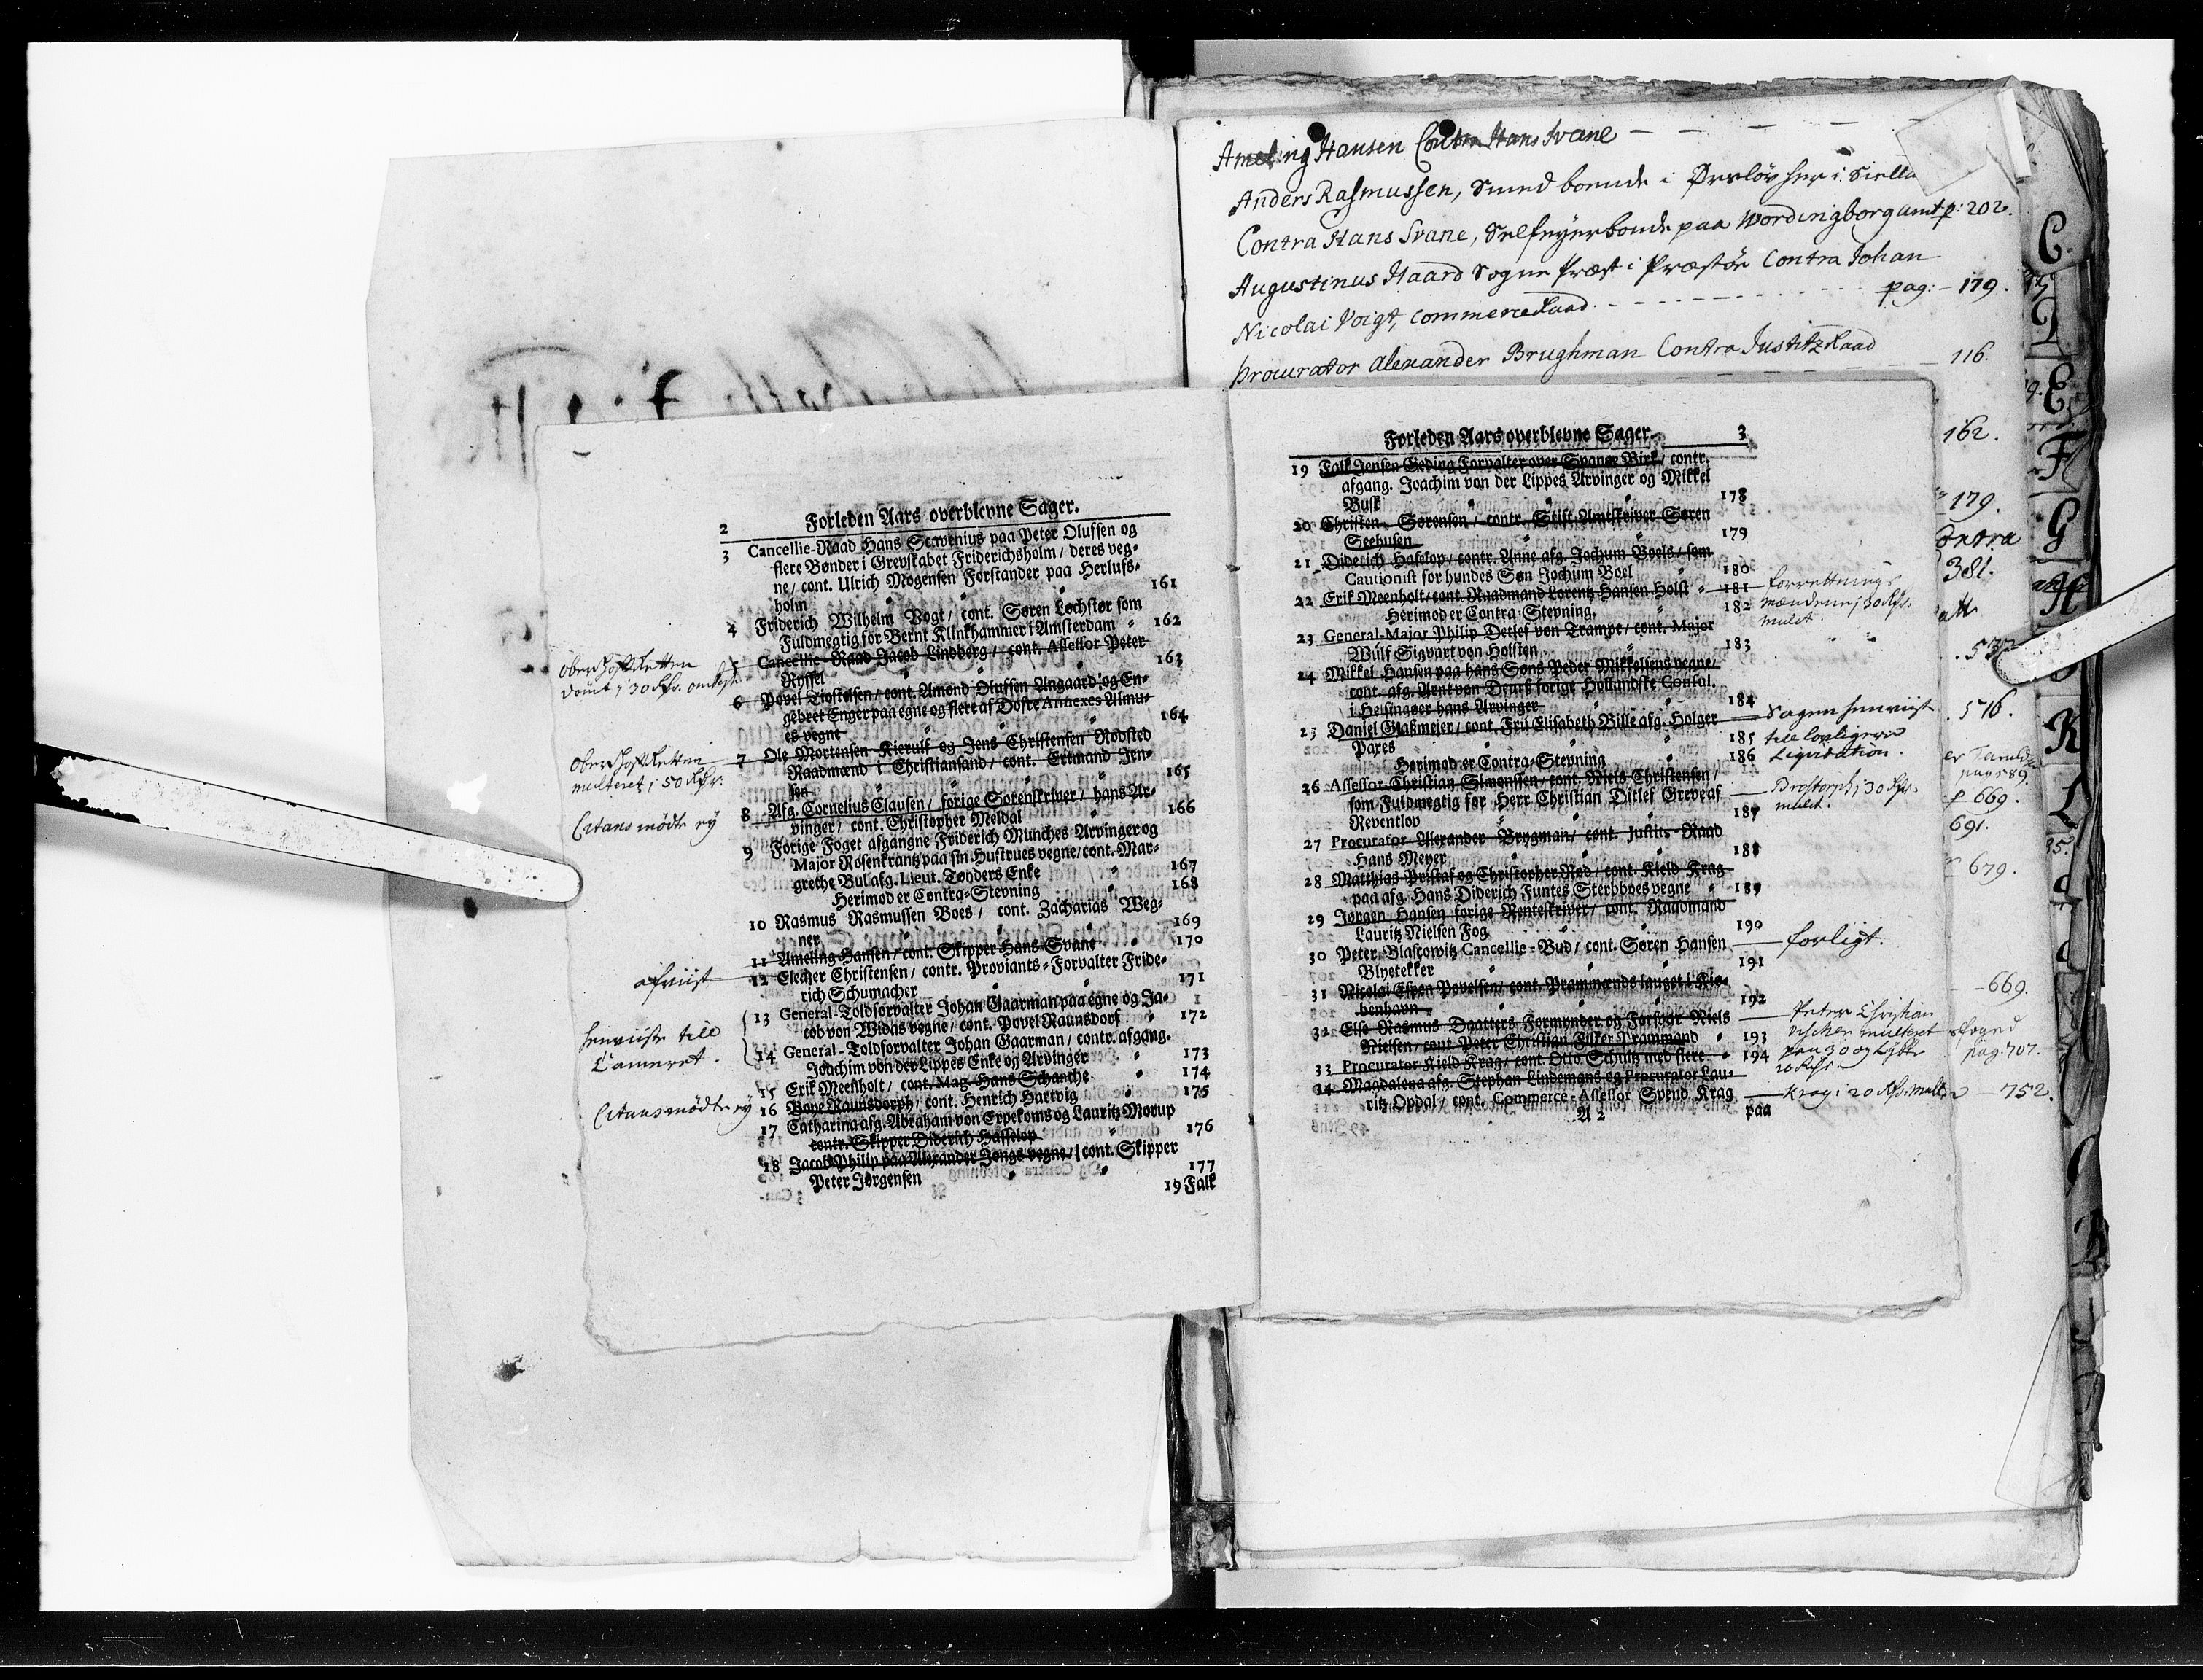 Ameling Hansen Contra Hans Svane
Anders Rasmussen, Smed boende i Ørsløv her i Siella
Contra Hans Svane, Selfeyerbonde paa Wordingborg amt p: 202.
Augustinus Haard Sogne Præst i Præstøe Contra Johan
Nicolai Voigt, Commerce Raad pag: 179.
Procurator Alexander Brughman Contra Justitz Raad
116.
162.
179.
Contra
381.
576.
p 669.
691.
679.
669.
pag: 707.
752.
C.
E
F
G
H
K
L
2 Forleden Aars overblevne Sager.
3 Cancellie-Raad Hans Scavenius paa Peter Olufsen og
flere Bønder i Grevskabet Friderichsholm / deres veg-
ne / cont. Ulrich Mogensen Forstander paa Herlufs-
holm 161
4 Friderich Wilhelm Vogt / cont. Søren Lochstør som
Fuldmegtig for Bernt Klinkhammer i Amsterdam 162
5 Cancellie-Raad Jacob Lindberg / cont. Assessor Peter
Ryssel 163
6 Povel Tiostelsen / cont. Amond Oluffsen Angaard og En-
gebret Enger paa egne og flere af Dofre Annexes Almu-
es vegne 164
7 Ole Mortensen Kierulf og Jens Christensen Rodsted
Raadmænd i Christiansand / cont. Ertmand Jen-
sen 165
8 Afg. Cornelius Clausen / forige Sorenskriver / hans Ar-
vinger / cont. Christopher Meldal 166
9 Forige Foget afgangne Friderich Munches Arvinger og
Major Rosenkrantz paa sin Hustrues vegne / cont. Mar-
grethe Bul afg. Lieut. Tønders Enke 167
Herimod er Contra-Stevning 168
10 Rasmus Rasmussen Boes / cont. Zacharias Weg-
ner 169
11 Ameling Hansen / cont. Skipper Hans Svane 170
12 Eleazer Christensen / contr. Proviants-Forvalter Fride-
rich Schumacher 171
13 General-Toldforvalter Johan Gaarman paa egne og Ja-
cob von Widas vegne / cont. Povel Raunsdorf 172
14 General-Toldforvalter Johan Gaarman / contr. afgang.
Joachim von der Lippes Enke og Arvinger 173
15 Erik Meenholt / cont. Mag. Hans Schanche 174
16 Bove Raunsdorph / cont. Henrich Hartvig 175
17 Catharina afg. Abraham von Erpekoms og Lauritz Morup
contr. Skipper Diderich Hasselop 176
18 Jacob Philip paa Alexander Jongs vegne / cont. Skipper
Peter Jørgensen 177
19 Falk
Ober Hoff Retten
dømt i 30 Rdr.
Ober Hoff Retten
mulcteret i 50 Rdr.
Citans mødte ey
afviist
henviiste till
Cameret.
Citans mødte ey
Forleden Aars overblevne Sager. 3
19 Falk Jensen Geding Forvalter over Svanøe Birk / contr.
afgang. Joachim von der Lippes Arvinger og Mikkel
Busk 178
20 Christen Sørensen / contr. Stift-Amtskriver Søren
Seehusen 179
21 Diderich Haselop / contr. Anne afg. Jochum Boels / som
Cautionist for hundes Søn Jochum Boel 180
22 Erik Meenholt / cont. Raadmand Lorentz Hansen Holst 181
Herimod er Contra-Stevning. 182
23 General-Major Philip Detlef von Trampe / cont. Major
Wulf Sigvart von Holsten 183
24 Mikkel Hansen paa hans Søns Peder Mikkelsens vegne /
cont. afg. Arnt von Deurs forige Hollandske Consul.
i Helsingøer hans Arvinger 184
25 Daniel Glaßmeier / cont. Fru Elisabeth Bille afg. Holger
Paxes 185
Herimod er Contra-Stevning 186
26 Assessor Christian Simonssen / cont. Niels Christensen /
som Fuldmegtig for Herr Christian Ditlef Greve af
Reventlov 187
27 Procurator Alexander Brygman / cont. Justits-Raad
Hans Meyer 188
28 Matthias Pristaf og Christopher Rød / cont. Kield Krag
paa afg. Hans Diderich Funtes Sterbboes vegne 189
29 Jørgen Hansen forige Renteskriver / cont. Raadmand
Lauritz Nielsen Fog 190
30 Peter Blascowitz Cancellie-Bud / cont. Søren Hansen
Blyetekker 191
31 Nicolai Espen Povelsen / cont. Prammænds lauget i Kiø-
benhavn 192
32 Else Rasmus Daatters Formynder og Forsvar Niels
Nielsen / cont. Peter Christian Fisker Prammand 193
33 Procurator Kield Krag / cont. Otto Schultz med flere 194
34 Magdalena afg. Stephan Lindemans og Procurator Lau-
ritz Opdal / cont. Commerce-Assessor Svend Krag
A 2 paa
forrettnings
mændene i 30 Rdr.
mulct.
Sagen henviist
till lovligere
Liquidation.
i 30 Rdr.
mulct.
forligt.
Peter Christian
Fischer mulcteret
Krag i 20 Rdr. mulct